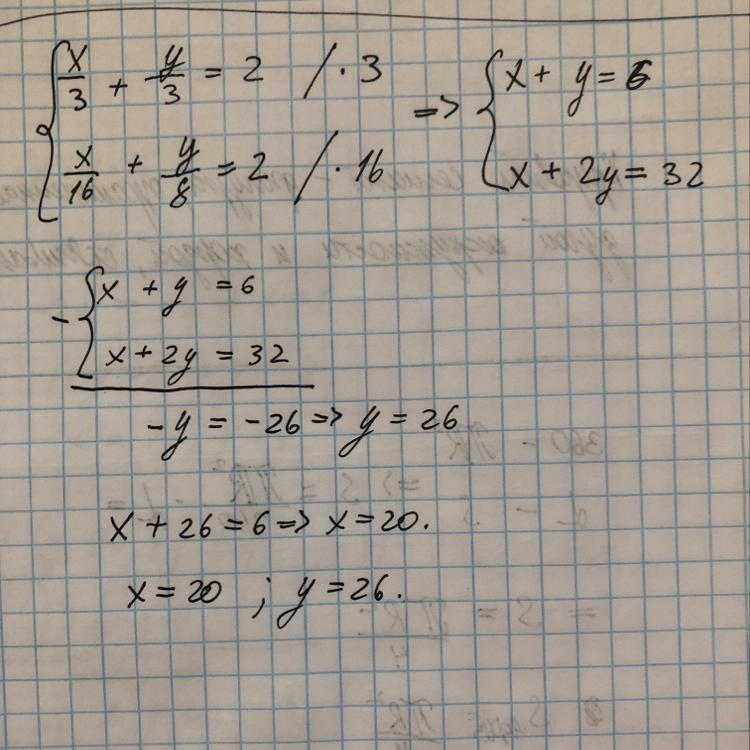 x/3 + y/3 = 2 / · 3 => x + y = 6
x/16 + y/8 = 2 / · 16 x + 2y = 32
- { x + y = 6
x + 2y = 32
-y = -26 => y = 26
x + 26 = 6 => x = 20.
x = 20 ; y = 26.